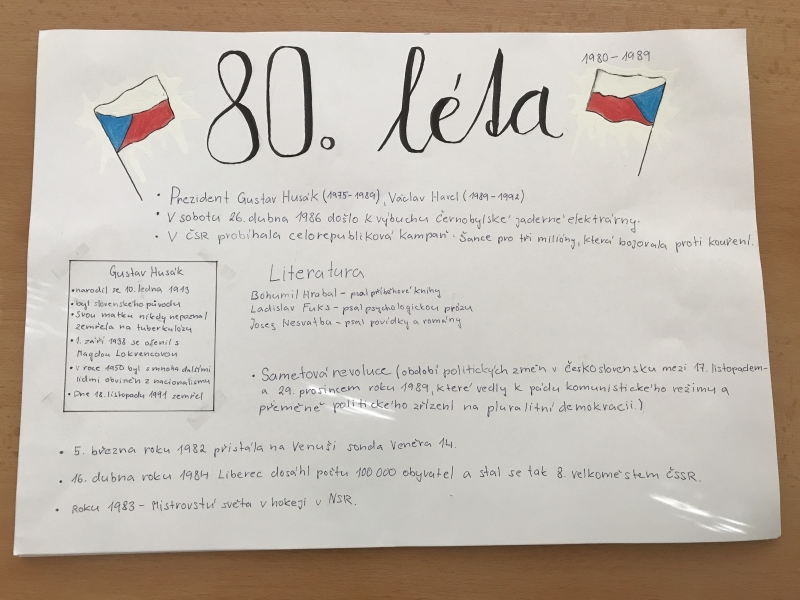 80. léta
1980 – 1989
• Prezident Gustav Husák (1975-1989), Václav Havel (1989-1992)
• V sobotu 26. dubna 1986 došlo k výbuchu Černobylské jaderné elektrárny.
• V ČSR probíhala celorepubliková kampaň - Šance pro tři milióny, která bojovala proti kouření.
Gustav Husák
• narodil se 10. ledna 1913
• byl slovenského původu
• Svou matku nikdy nepoznal
zemřela na tuberkulózu
• 1. září 1938 se oženil s
Magdou Lokvencovou
• v roce 1950 byl s mnoha dalšími
lidmi obviněn z nacionalismu
• Dne 18. listopadu 1991 zemřel
Literatura
Bohumil Hrabal – psal příběhové knihy
Ladislav Fuks – psal psychologickou prózu
Josef Nesvatba – psal povídky a romány
• Sametová revoluce (období politických změn v Československu mezi 17. listopadem-
a 29. prosincem roku 1989, které vedly k pádu komunistického režimu a
přeměně politického zřízení na pluralitní demokracii.)
• 5. března roku 1982 přistála na Venuši sonda Veněra 14.
• 16. dubna roku 1984 Liberec dosáhl počtu 100 000 obyvatel a stal se tak 8. velkoměstem ČSSR.
• Roku 1983 – Mistrovství světa v hokeji v NSR.